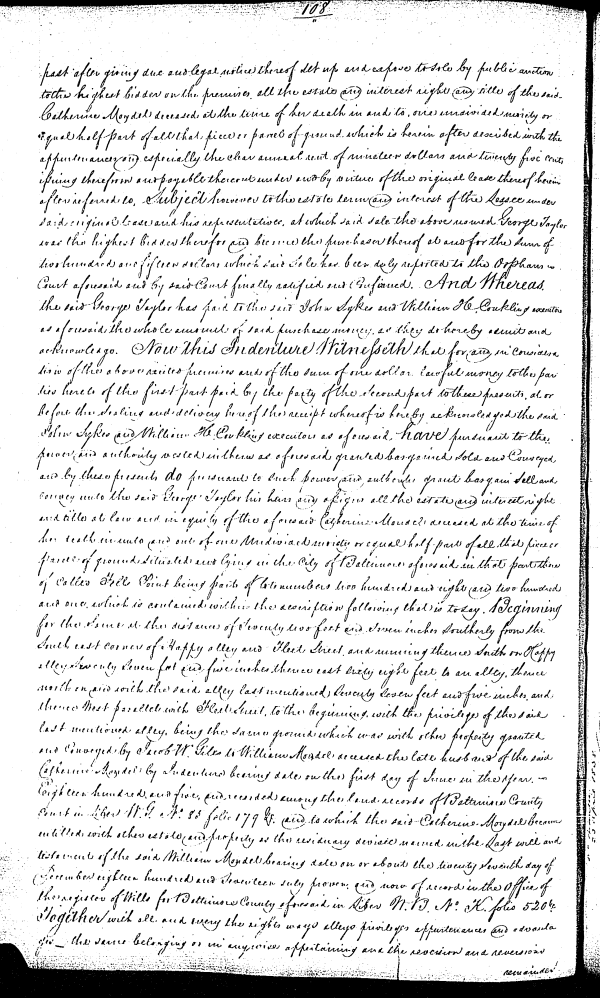 108
past after giving due and legal notice thereof set up and expose to sale by public auction
to the highest bidder on the premises, all the estate and interest right and title of the said
Catherine Moydel deceased at the time of her death in and to, one undivided moiety or
equal half part of all that piece or parcel of ground which is herein after described with the
appurtenances and especially the clear annual rent of nineteen dollars and twenty five cents
issuing therefrom and payable thereout under and by virtue of the original lease thereof herein
after referred to, Subject however to the estate term and interest of the Lessee under
said original lease and his representatives, at which said sale the above named George Taylor
was the highest bidder therefor and became the purchaser thereof at and for the sum of
two hundred and fifteen dollars which said sale has been duly reported to the Orphans
Court aforesaid and by said Court finally ratified and confirmed. And Whereas
the said George Taylor has paid to the said John Sykes and William H. Conkling executors
as aforesaid the whole amount of said purchase money, as they do hereby admit and
acknowledge. Now this Indenture Witnesseth that for, and in considera
tion of the above recited premises and of the sum of one dollar lawful money to the par
ties hereto of the first part paid by the party of the second part to these presents, at or
before the sealing and delivery hereof the receipt whereof is hereby acknowledged the said
John Sykes and William H. Conkling executors as aforesaid, have pursuant to the
power, and authority vested in them as aforesaid granted bargained sold and conveyed
and by these presents do pursuant to such power, and authority grant bargain sell and
convey unto the said George Taylor his heirs and assigns all the estate and interest right
and title at law and in equity of the aforesaid Catherine Moydel deceased at the time of
her death in unto and out of one Undivided moiety or equal half part of all that piece or
parcel of ground situated and lying in the City of Baltimore aforesaid in that part there
of called Fells Point being parts of lots numbers two hundred and eight and two hundred
and one, which is contained within the description following that is to say. Beginning
for the same at the distance of Seventy two feet and seven inches southerly from the
South east corner of Happy alley and Fleet Street, and running thence South on Happy
alley Seventy Seven feet and five inches, thence east sixty eight feet to an alley, thence
north on and with the said alley last mentioned Seventy Seven feet and five inches, and
thence West parallel with Fleet Street, to the beginning, with the privilege of the said
last mentioned alley, being the same ground which was with other property granted
and conveyed by Jacob W. Giles to William Moydel deceased the late husband of the said
Catherine Moydel by Indenture bearing date on the first day of June in the year
Eighteen hundred, and five, and recorded among the land records of Baltimore County
Court in Liber W.G. No. 85 folio 179 &c. and to which the said Catherine Moydel became
entitled with other estate, and property as the residuary devisee named in the Last will and
testament of the said William Moydel bearing date on or about the twenty seventh day of
December eighteen hundred and Seventeen duly proven, and now of record in the Office of
the register of Wills for Baltimore County aforesaid in Liber W.B. No. K. folio 520 &c.
Together with all and every the rights ways alleys privileges appurtenances and advanta
ges the same belonging or in anywise appertaining and the reversion and reversions
remainder